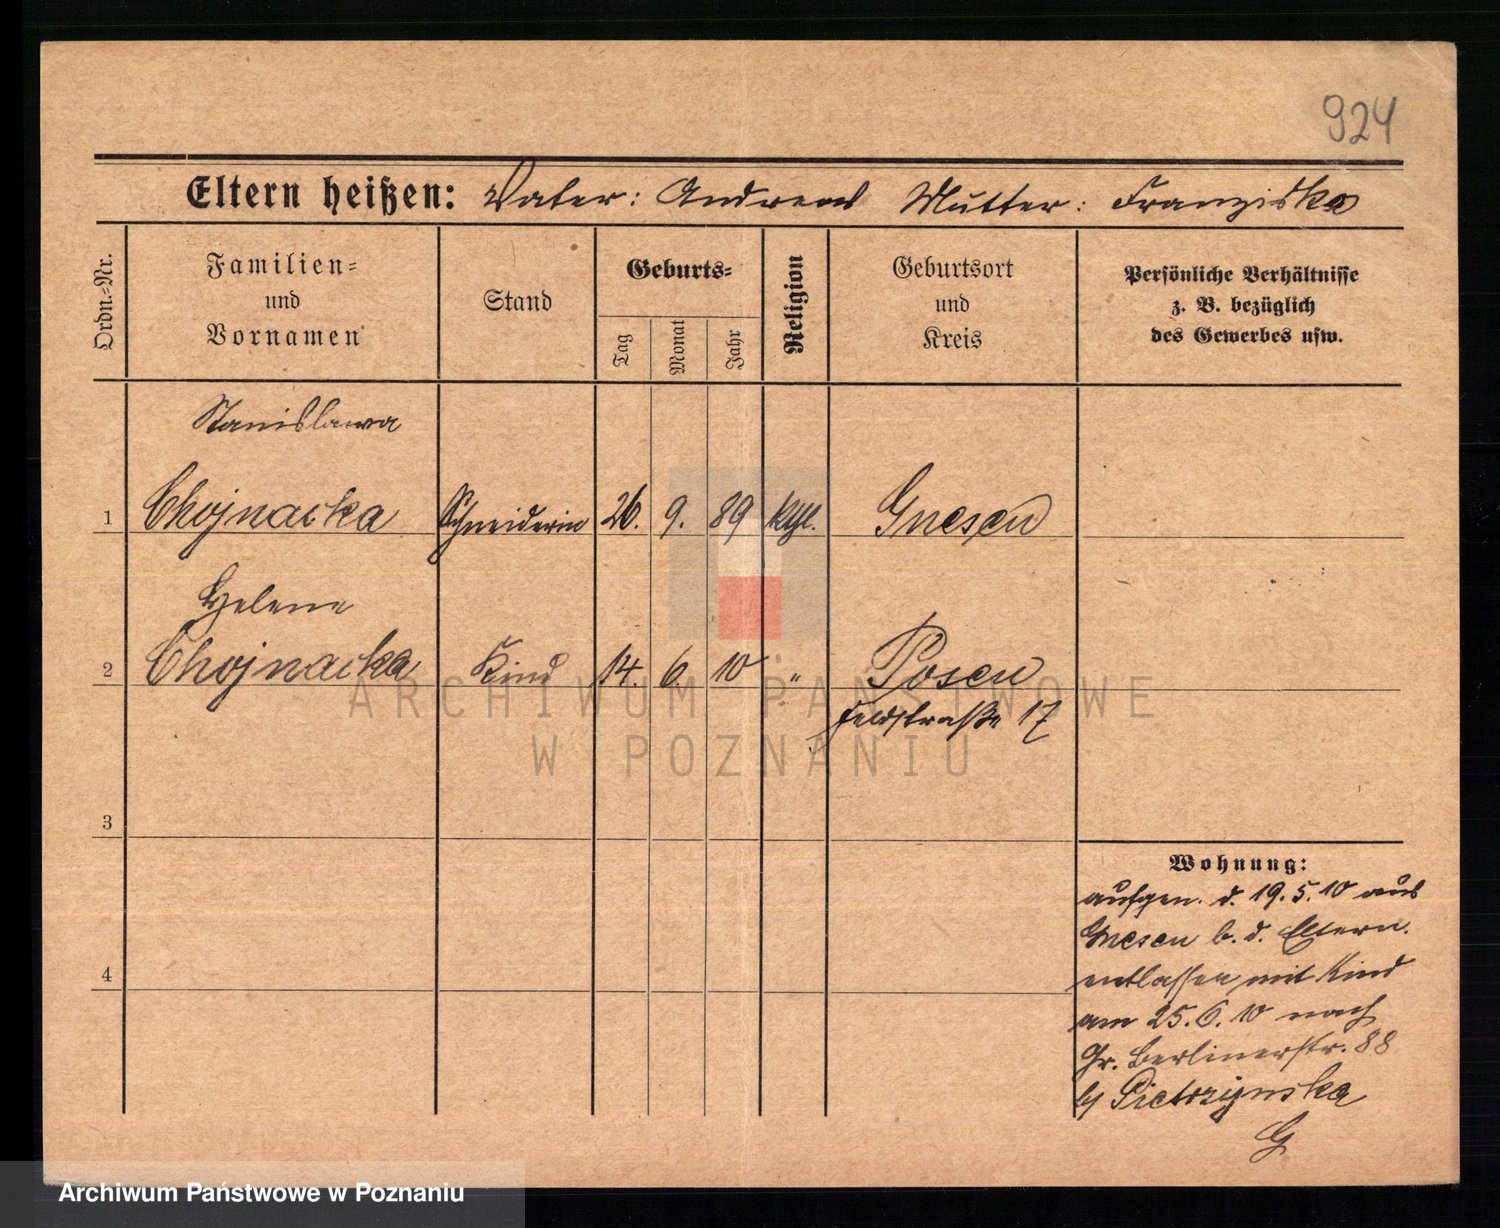 924
Eltern heißen: Vater: Andreas Mutter: Franziska
Ordn.-Nr.
Familien-
und
Vornamen
Stand
Geburts-
Tag
Monat
Jahr
Religion
Geburtsort
und
Kreis
Persönliche Verhältnisse
z. B. bezüglich
des Gewerbes usw.
Stanislawa
1 Chojnacka Schneiderin 26. 9. 89 kath. Gnesen
Helene
2 Chojnacka Kind 14. 6. 10 " Posen
Feldstraße 17
3
4
Wohnung:
aufgen. d. 19.5.10 aus
Gnesen b. d. Eltern.
entlassen mit Kind
am 25.6.10 nach
Gr. Berlinerstr. 88
b/ Pietrzynska
G
ARCHIWUM PAŃSTWOWE
W POZNANIU
Archiwum Państwowe w Poznaniu